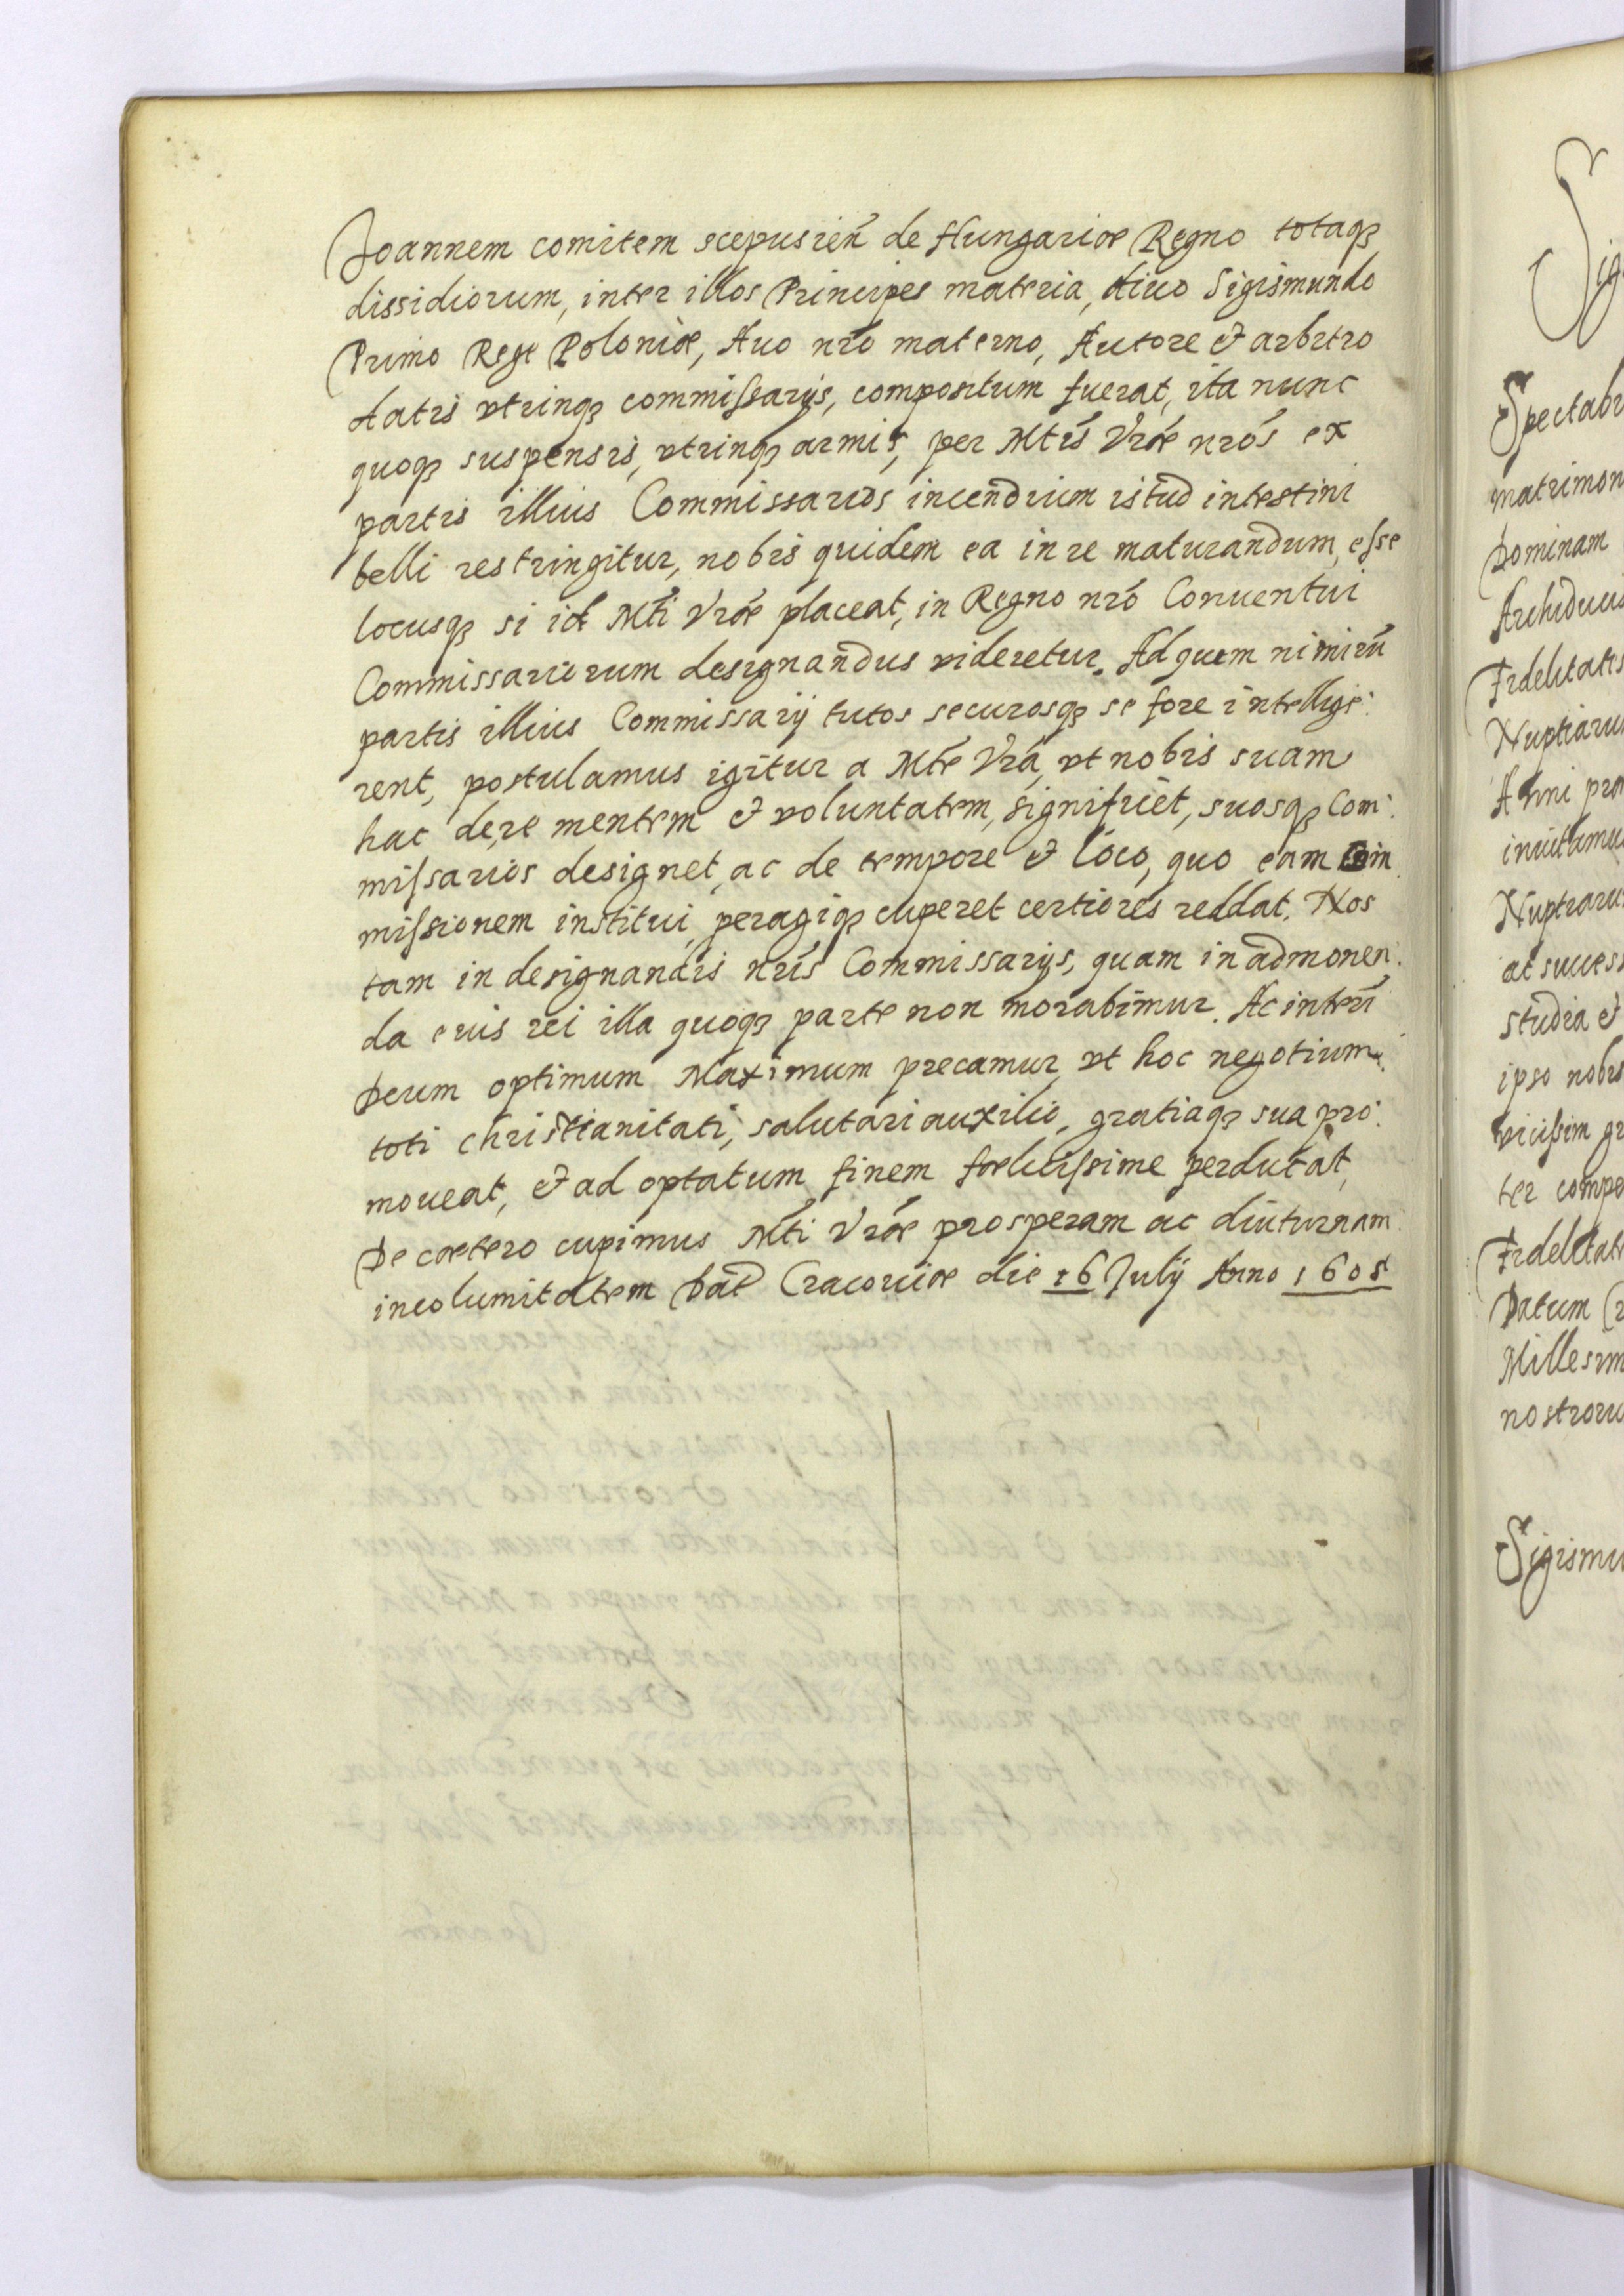 Joannem comitem scepusień de Hungariæ Regno totaqꝫ
dissidiorum, inter illos Principes materia, diuo Sigismundo
Primo Rege Poloniæ, Auo nrõ materno, Autore & arbitro
datis vtrinqꝫ commiſsarijs, compositum fuerat, ita nunc
quoqꝫ suspensis, vtrinqꝫ armis, per Mtis Vræ nros ex
partis illius Commissarios incendium istud intestini
belli restringitur, nobis quidem ea in re maturandum, eſse
locusqꝫ si id Mti Vræ placeat, in Regno nrõ Conuentui
Commissariorum designandus videretur. Ad quem nimirũ
partis illius Commissarij tutos securosqꝫ se fore intellige:
rent, postulamus igitur a Mte Vra, vt nobis suam
hac de re mentem & voluntatem, significet, suosqꝫ Com:
miſsarios designet, ac de tempore & loco, quo eam Com
miſsionem institui, peragiqꝫ cuperet certiores reddat. Nos
tam in designandis nris Commissarijs, quam in admonen:
da euis rei illa quoqꝫ parte non morabimur. Ac interĩ
Deum optimum Maximum precamur, vt hoc negotium
toti christianitati, salutari auxilio, gratiaqꝫ sua pro:
moueat, & ad optatum finem fœliciſsime perducat,
De cætero cupimus Mti Vræ prosperam ac diuturnam
incolumitatem Dat Cracouiæ die 16 Julij Anno 1605
Sig
Spectabi
matrimon
Dominam
Archiducis
Fidelitatis
Nuptiaru
Anni pro
inuitamus
Nuptiaru
ac success
studia &
ipso nobis
viciſsim gr
ter compe
Fidelitat
Datum
Millesim
nostroru
Sigismu